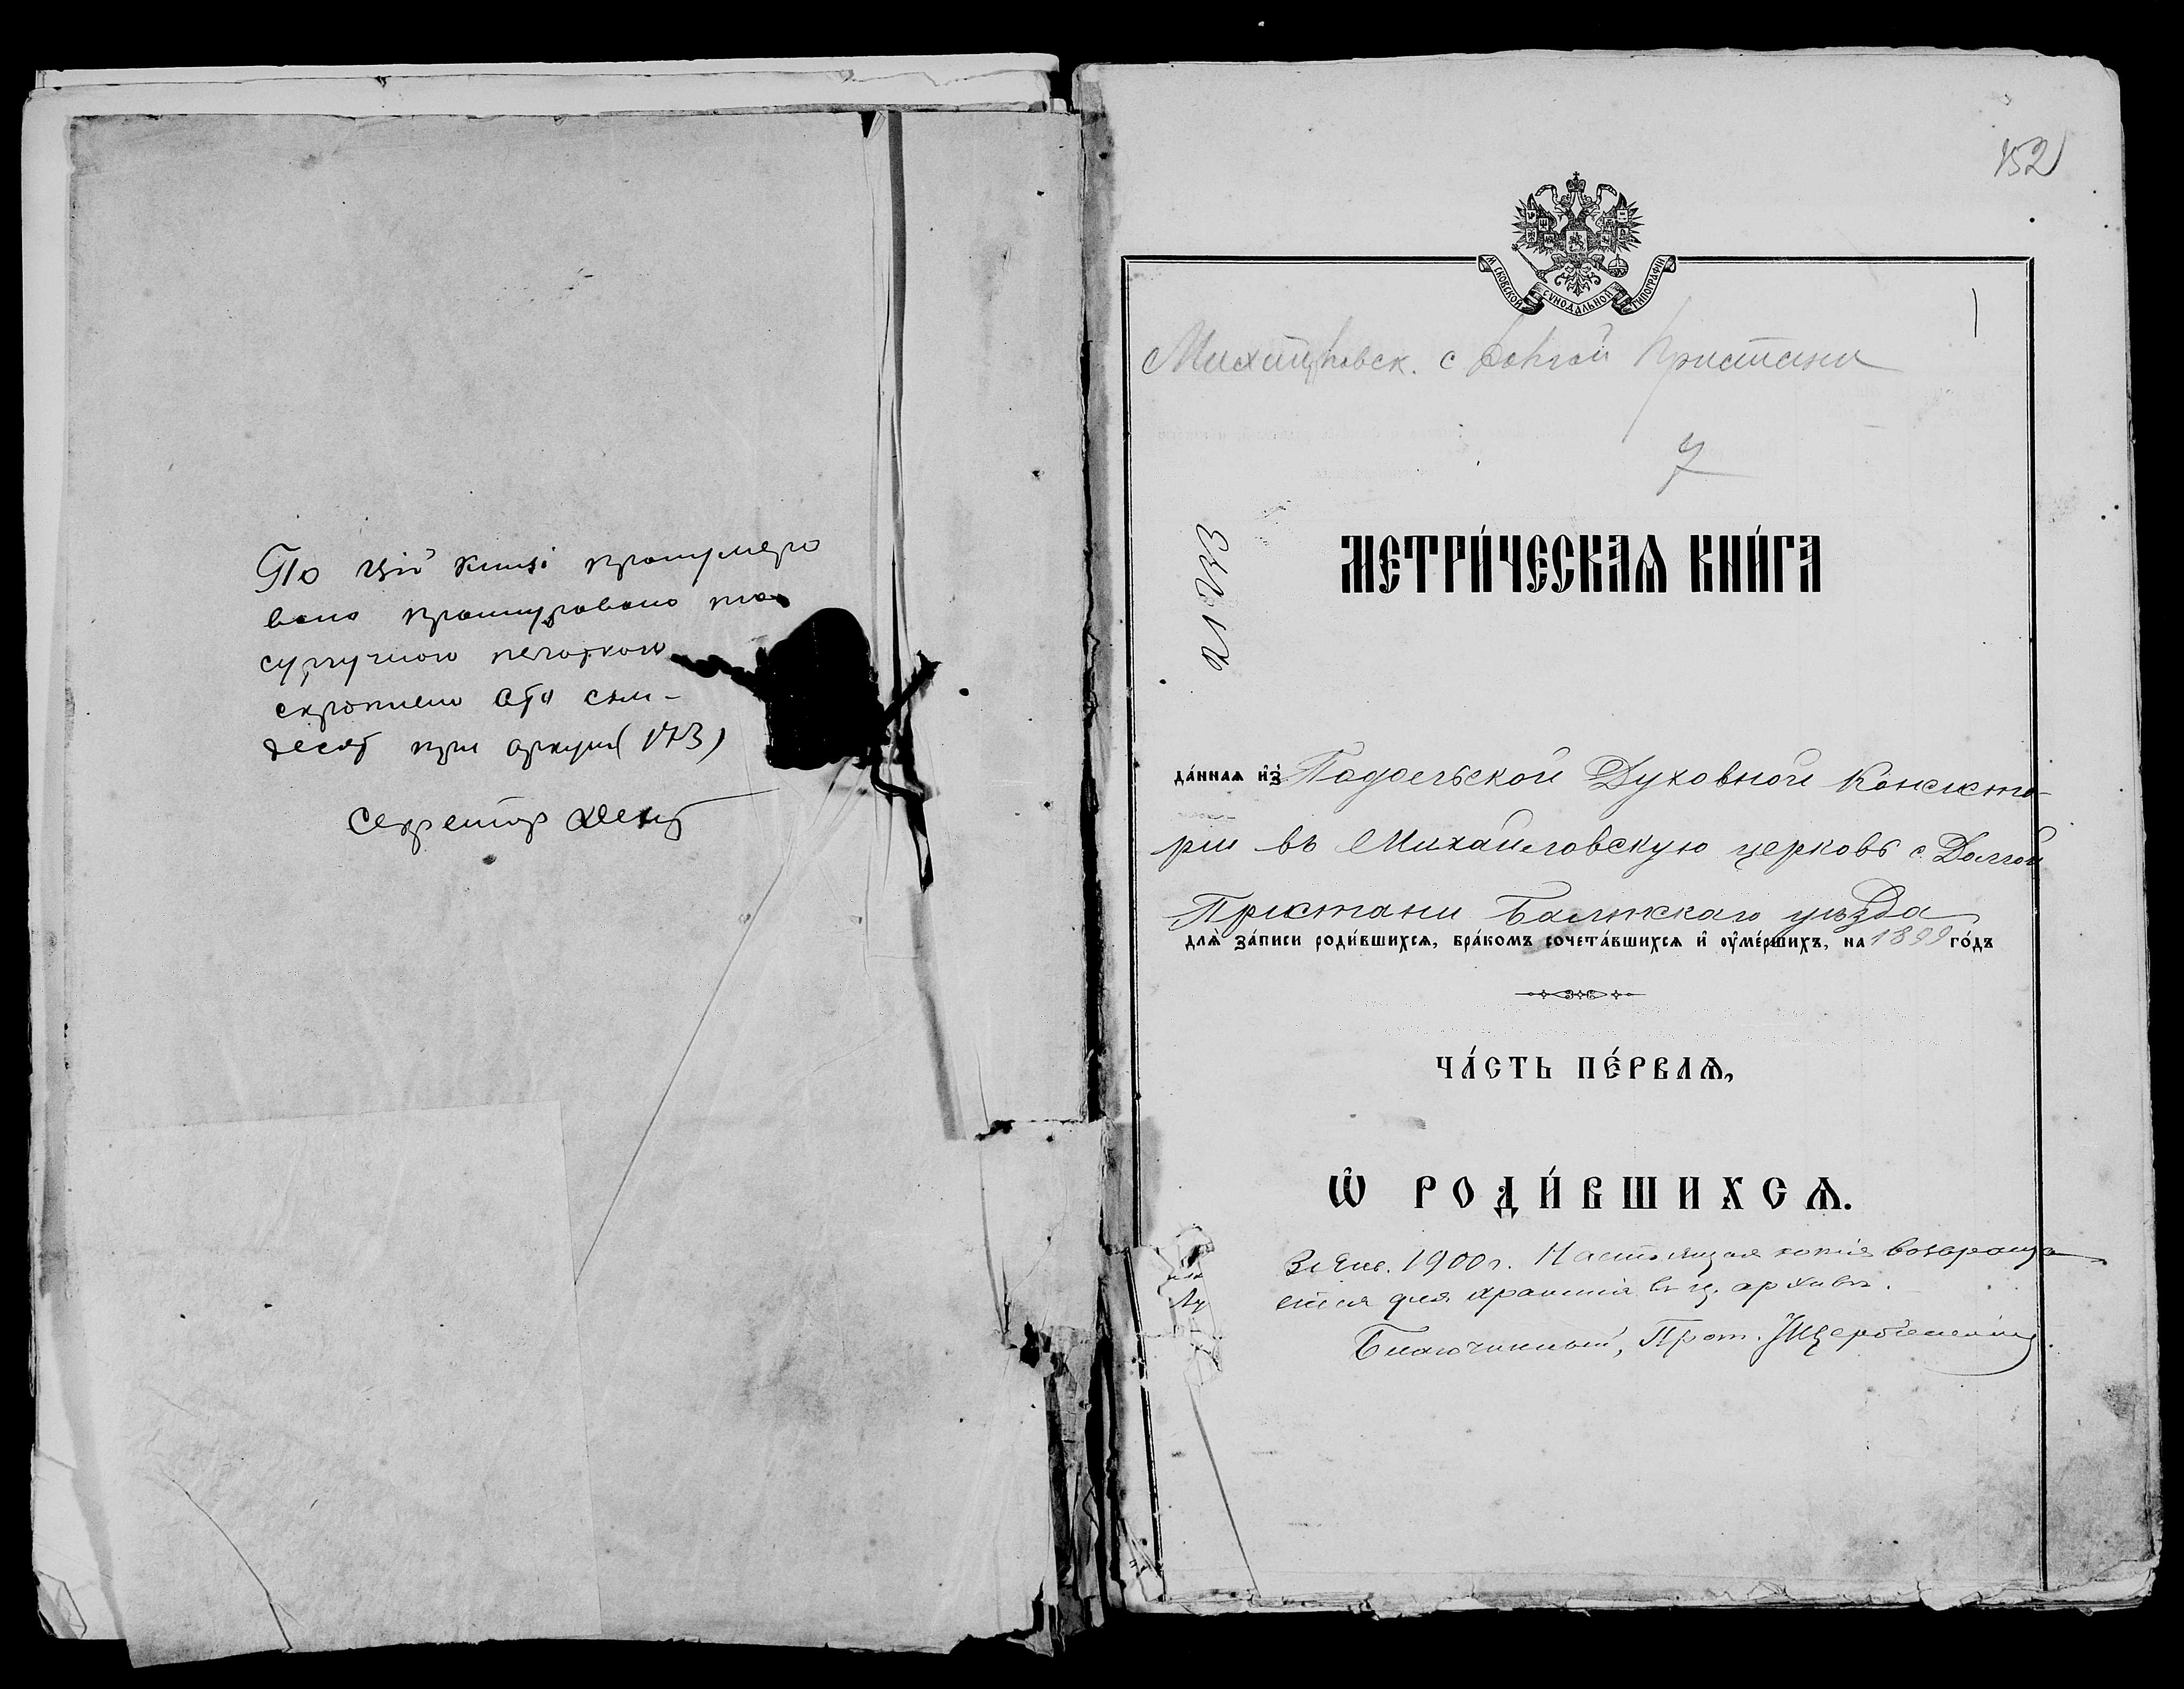 По цій книзі пронумеро
вано прошнуровано та
сургучною печаткою
скріплено сто сім-
десят три аркуші (173)
Секретар
152
МОСКОВСКОЙ СѴНОДАЛЬНОЙ ТИПОГРАФІИ
1
Михайловск. с Долгой Пристани
7
21233
МЕТРИ́ЧЕСКАѦ КНИ́ГА
да́ннаѧ и҆з̾ Подольской Духовной Консисто-
ріи въ Михайловскую церковь с Долгой
Пристани Балтскаго уѣзда
длѧ̀ за́писи роди́вшихсѧ, бра́комъ сочета́вшихсѧ и҆ ᲂу҆ме́ршихъ, на 1899 го́дъ
ЧА́СТЬ ПЕ́РВАѦ,
Ѽ РОДИ́ВШИХСѦ.
31 Янв. 1900 г. Настоящая копія возвраща
ется для храненія въ ц. архивѣ.
Благочинный, Прот.